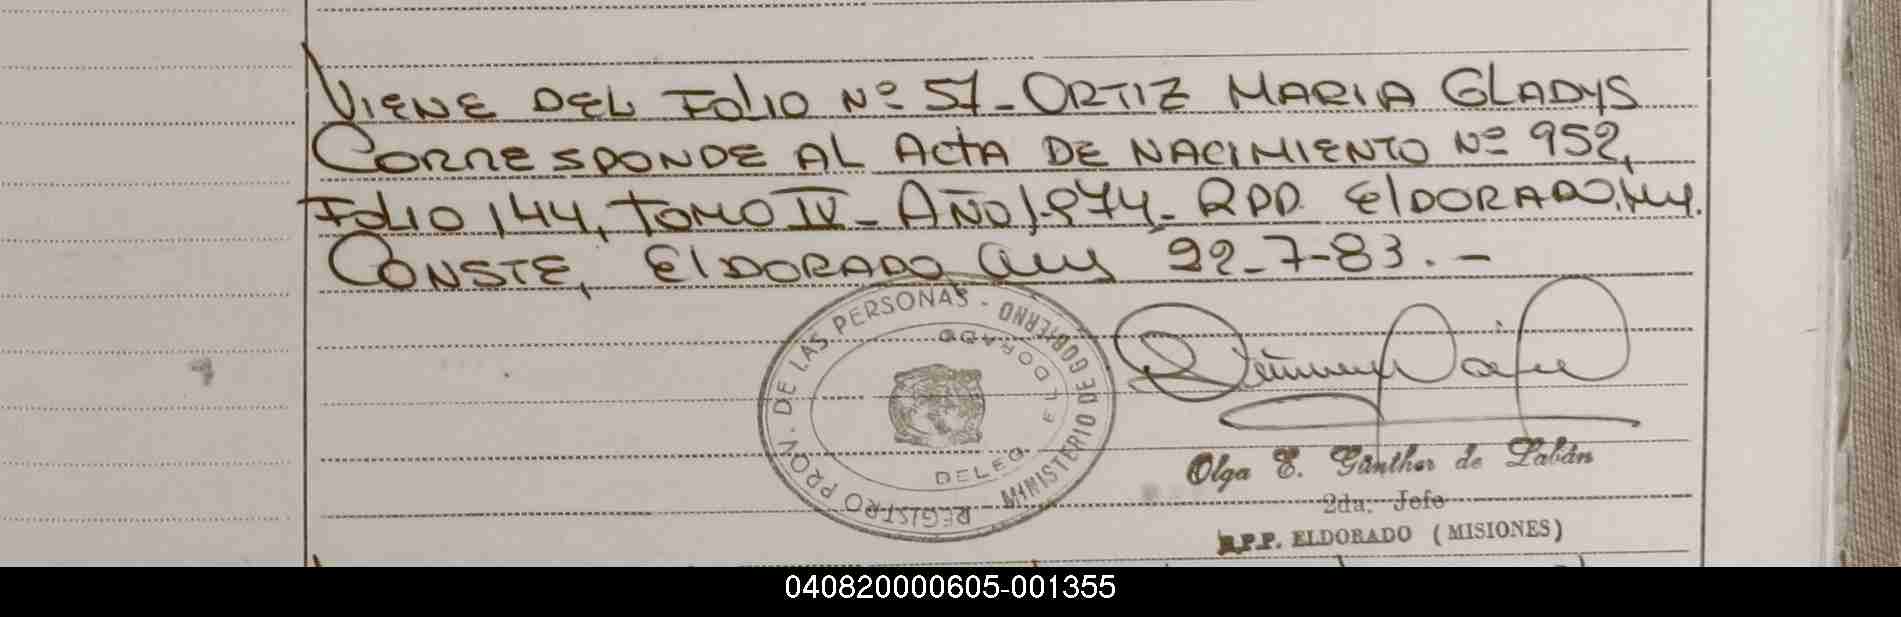 VIENE DEL FOLIO Nº 57_ ORTIZ MARIA GLADYS
CORRESPONDE AL ACTA DE NACIMIENTO Nº 952,
FOLIO 144, TOMO IV_ AÑO 1.974_ RPP. ElDORADO,
CONSTE, ElDORADO 22_7-83.-
REGISTRO PROV. DE LAS PERSONAS - MINISTERIO DE GOBIERNO
DELEG. ELDORADO
Olga E. Günther de Labán
2da. Jefe
R.P.P. ELDORADO (MISIONES)
040820000605-001355